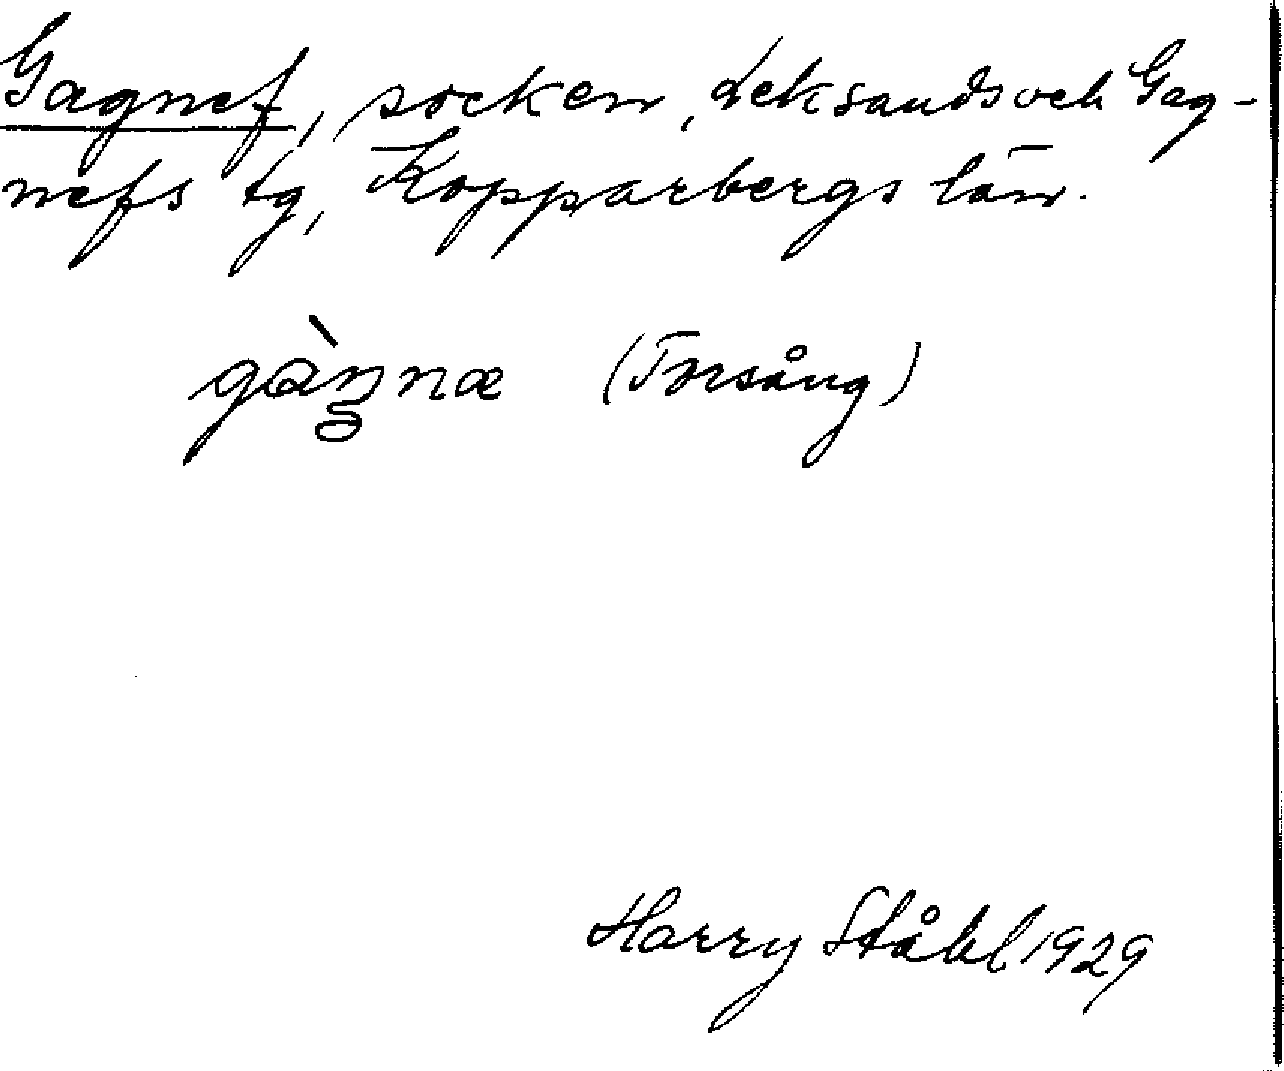 Gagnef, socken, Leksands och Gag-
nefs tg, Kopparbergs län.
gàŋnæ (Torsång)
Harry Ståhl 1929